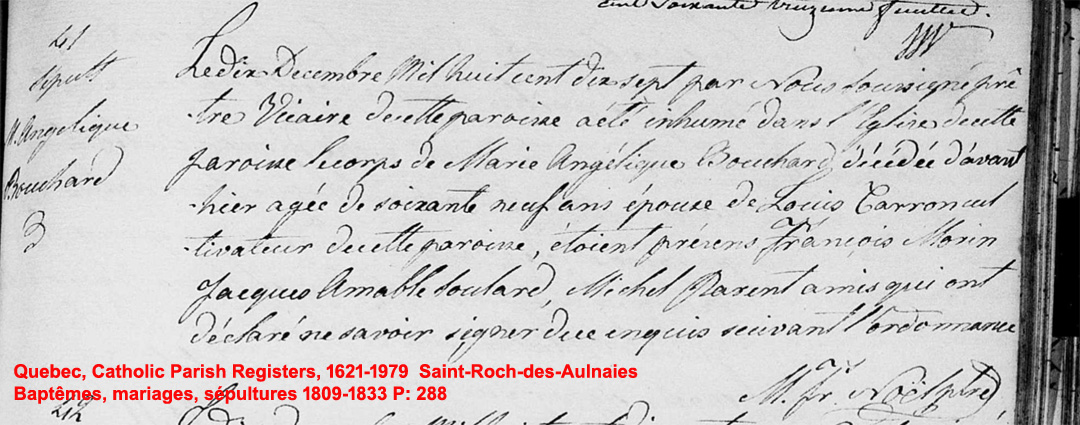 cent soixante treizieme feuillet.
41
Sepult
M. Angelique
Bouchard
3
Le dix Decembre Mil huit cent dix sept par Nous soussigné prê
-tre Vicaire de cette paroisse a été inhumé dans l'Eglise de cette
paroisse le corps de Marie Angélique Bouchard, décédée d'avant
-hier agée de soixante neuf ans épouse de Louis Carron cul
-tivateur de cette paroisse, étoient présens François Morin
Jacques Amable Soulard, Michel Parent amis qui ont
déclaré ne savoir signer de ce enquis suivant l'ordonnance
M. Fr. Noël ptre
Quebec, Catholic Parish Registers, 1621-1979 Saint-Roch-des-Aulnaies
Baptêmes, mariages, sépultures 1809-1833 P: 288
42